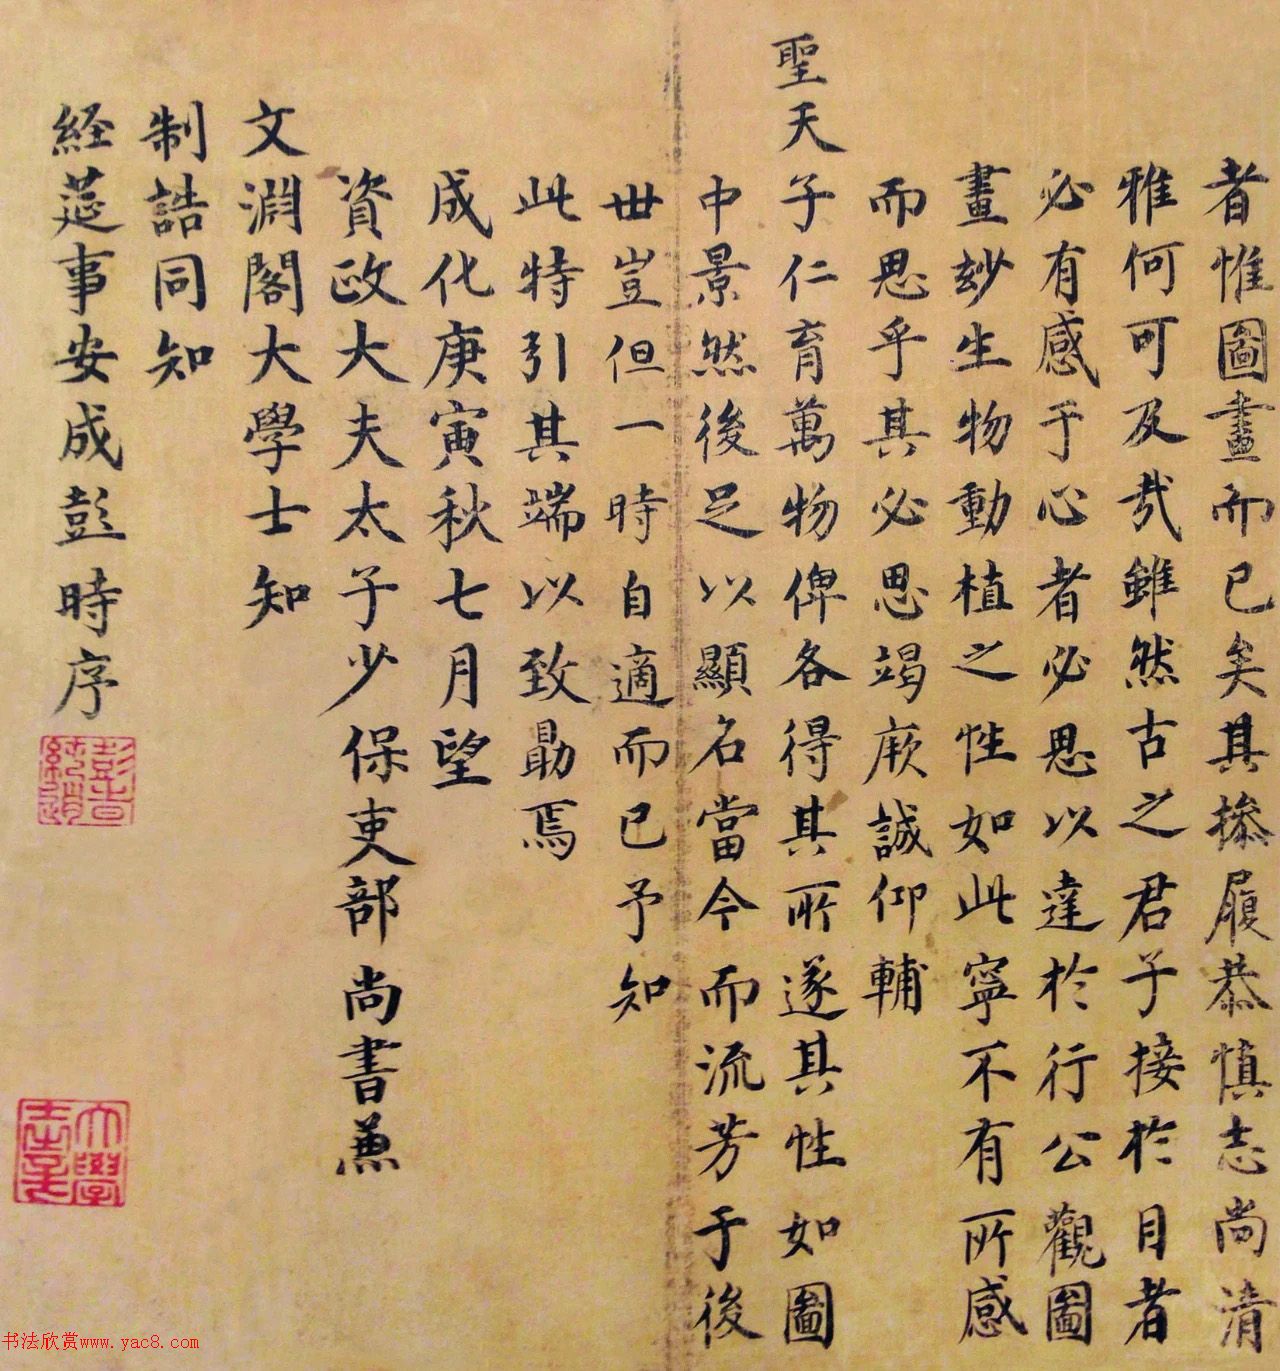 者惟圖畫而已矣其操履恭慎志尚清
雅何可及哉雖然古之君子接於目者
必有感于心者必思以達於行公觀圖
畫玅生物動植之性如此寧不有所感
而思乎其必思竭厥誠仰輔
聖天子仁育萬物俾各得其所遂其性如圖
中景然後足以顯名當今而流芳于後
世豈但一時自適而已予知
此特引其端以致勗焉
成化庚寅秋七月望
資政大夫太子少保吏部尚書兼
文淵閣大學士知
制誥同知
経莚事安成彭時序
大學士章
书法欣赏www.yac8.com